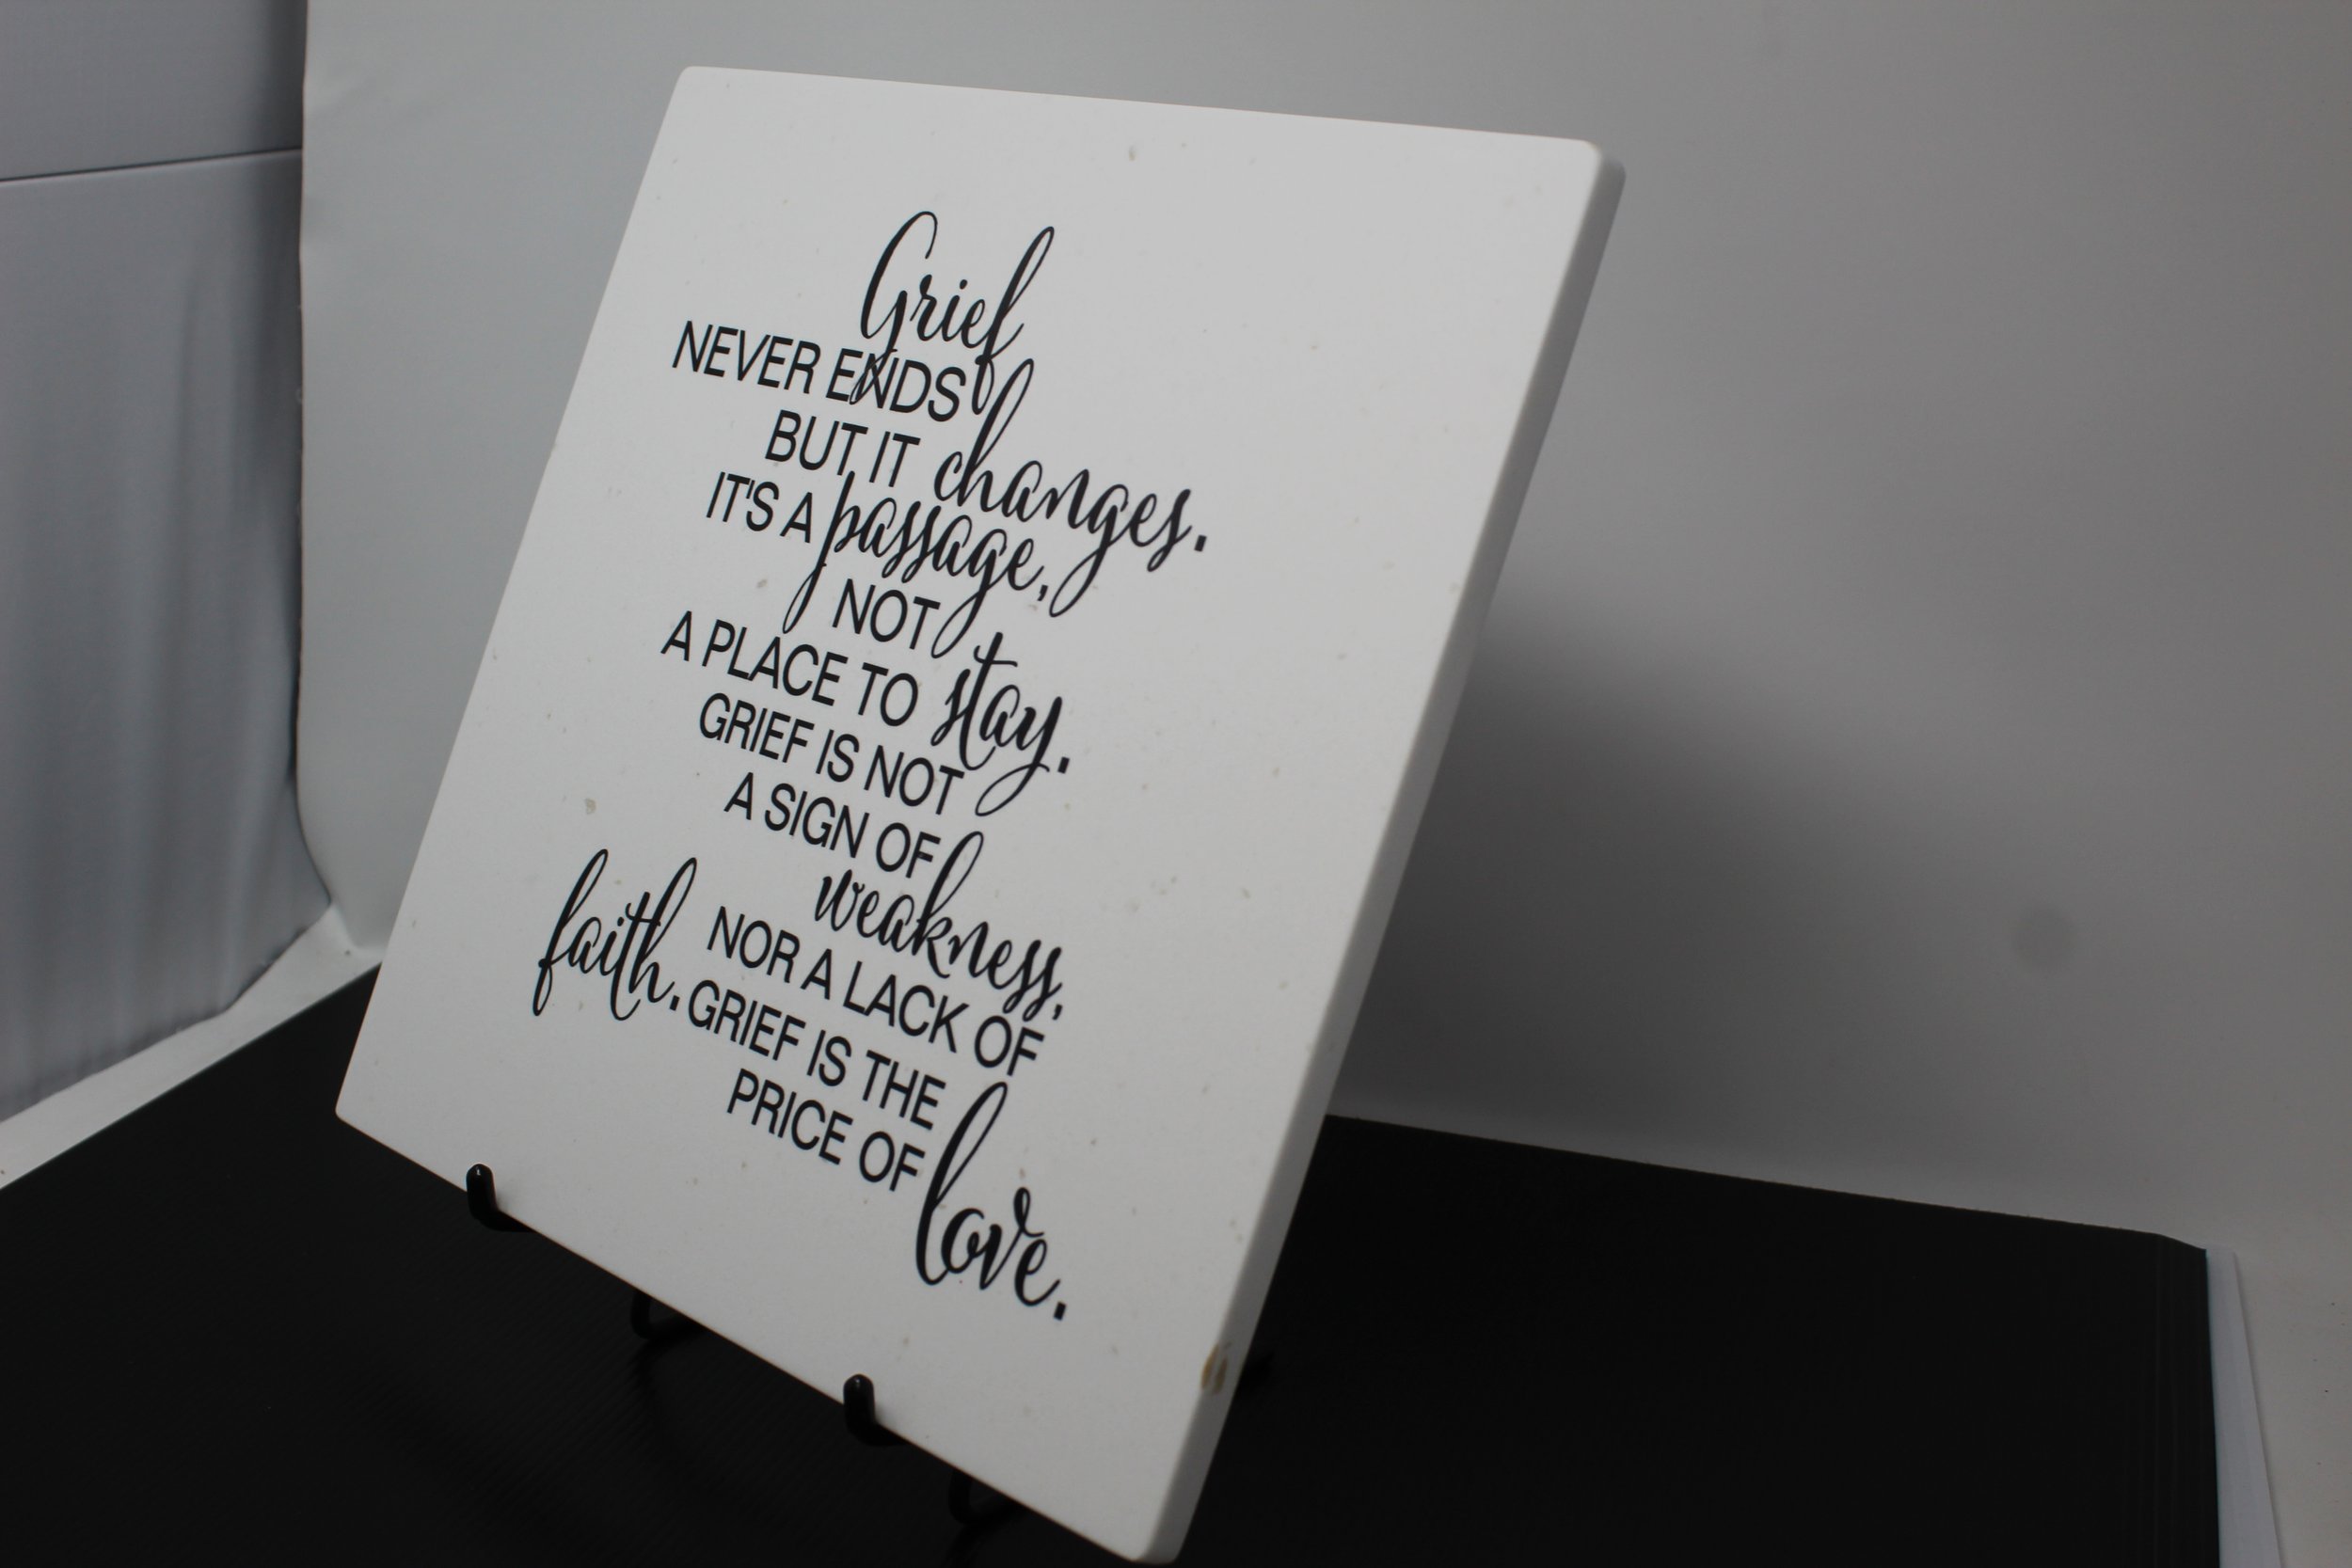 Grief
NEVER ENDS
BUT IT changes.
IT'S A passage,
NOT
A PLACE TO stay.
GRIEF IS NOT
A SIGN OF
weakness,
NOR A LACK OF
faith. GRIEF IS THE
PRICE OF
love.